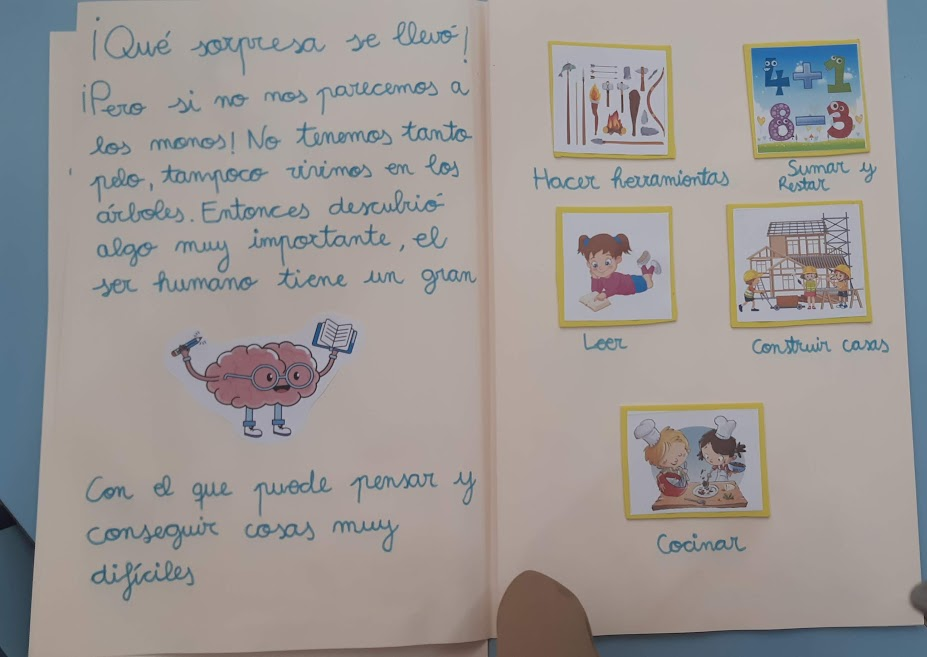 ¡Qué sorpresa se llevó!
¡Pero si no nos parecemos a
los monos! No tenemos tanto
pelo, tampoco vivimos en los
árboles. Entonces descubrió
algo muy importante, el
ser humano tiene un gran
Con el que puede pensar y
conseguir cosas muy
difíciles
Hacer herramientas
4+1
8-3
Sumar y
Restar
Leer
Construir casas
Cocinar